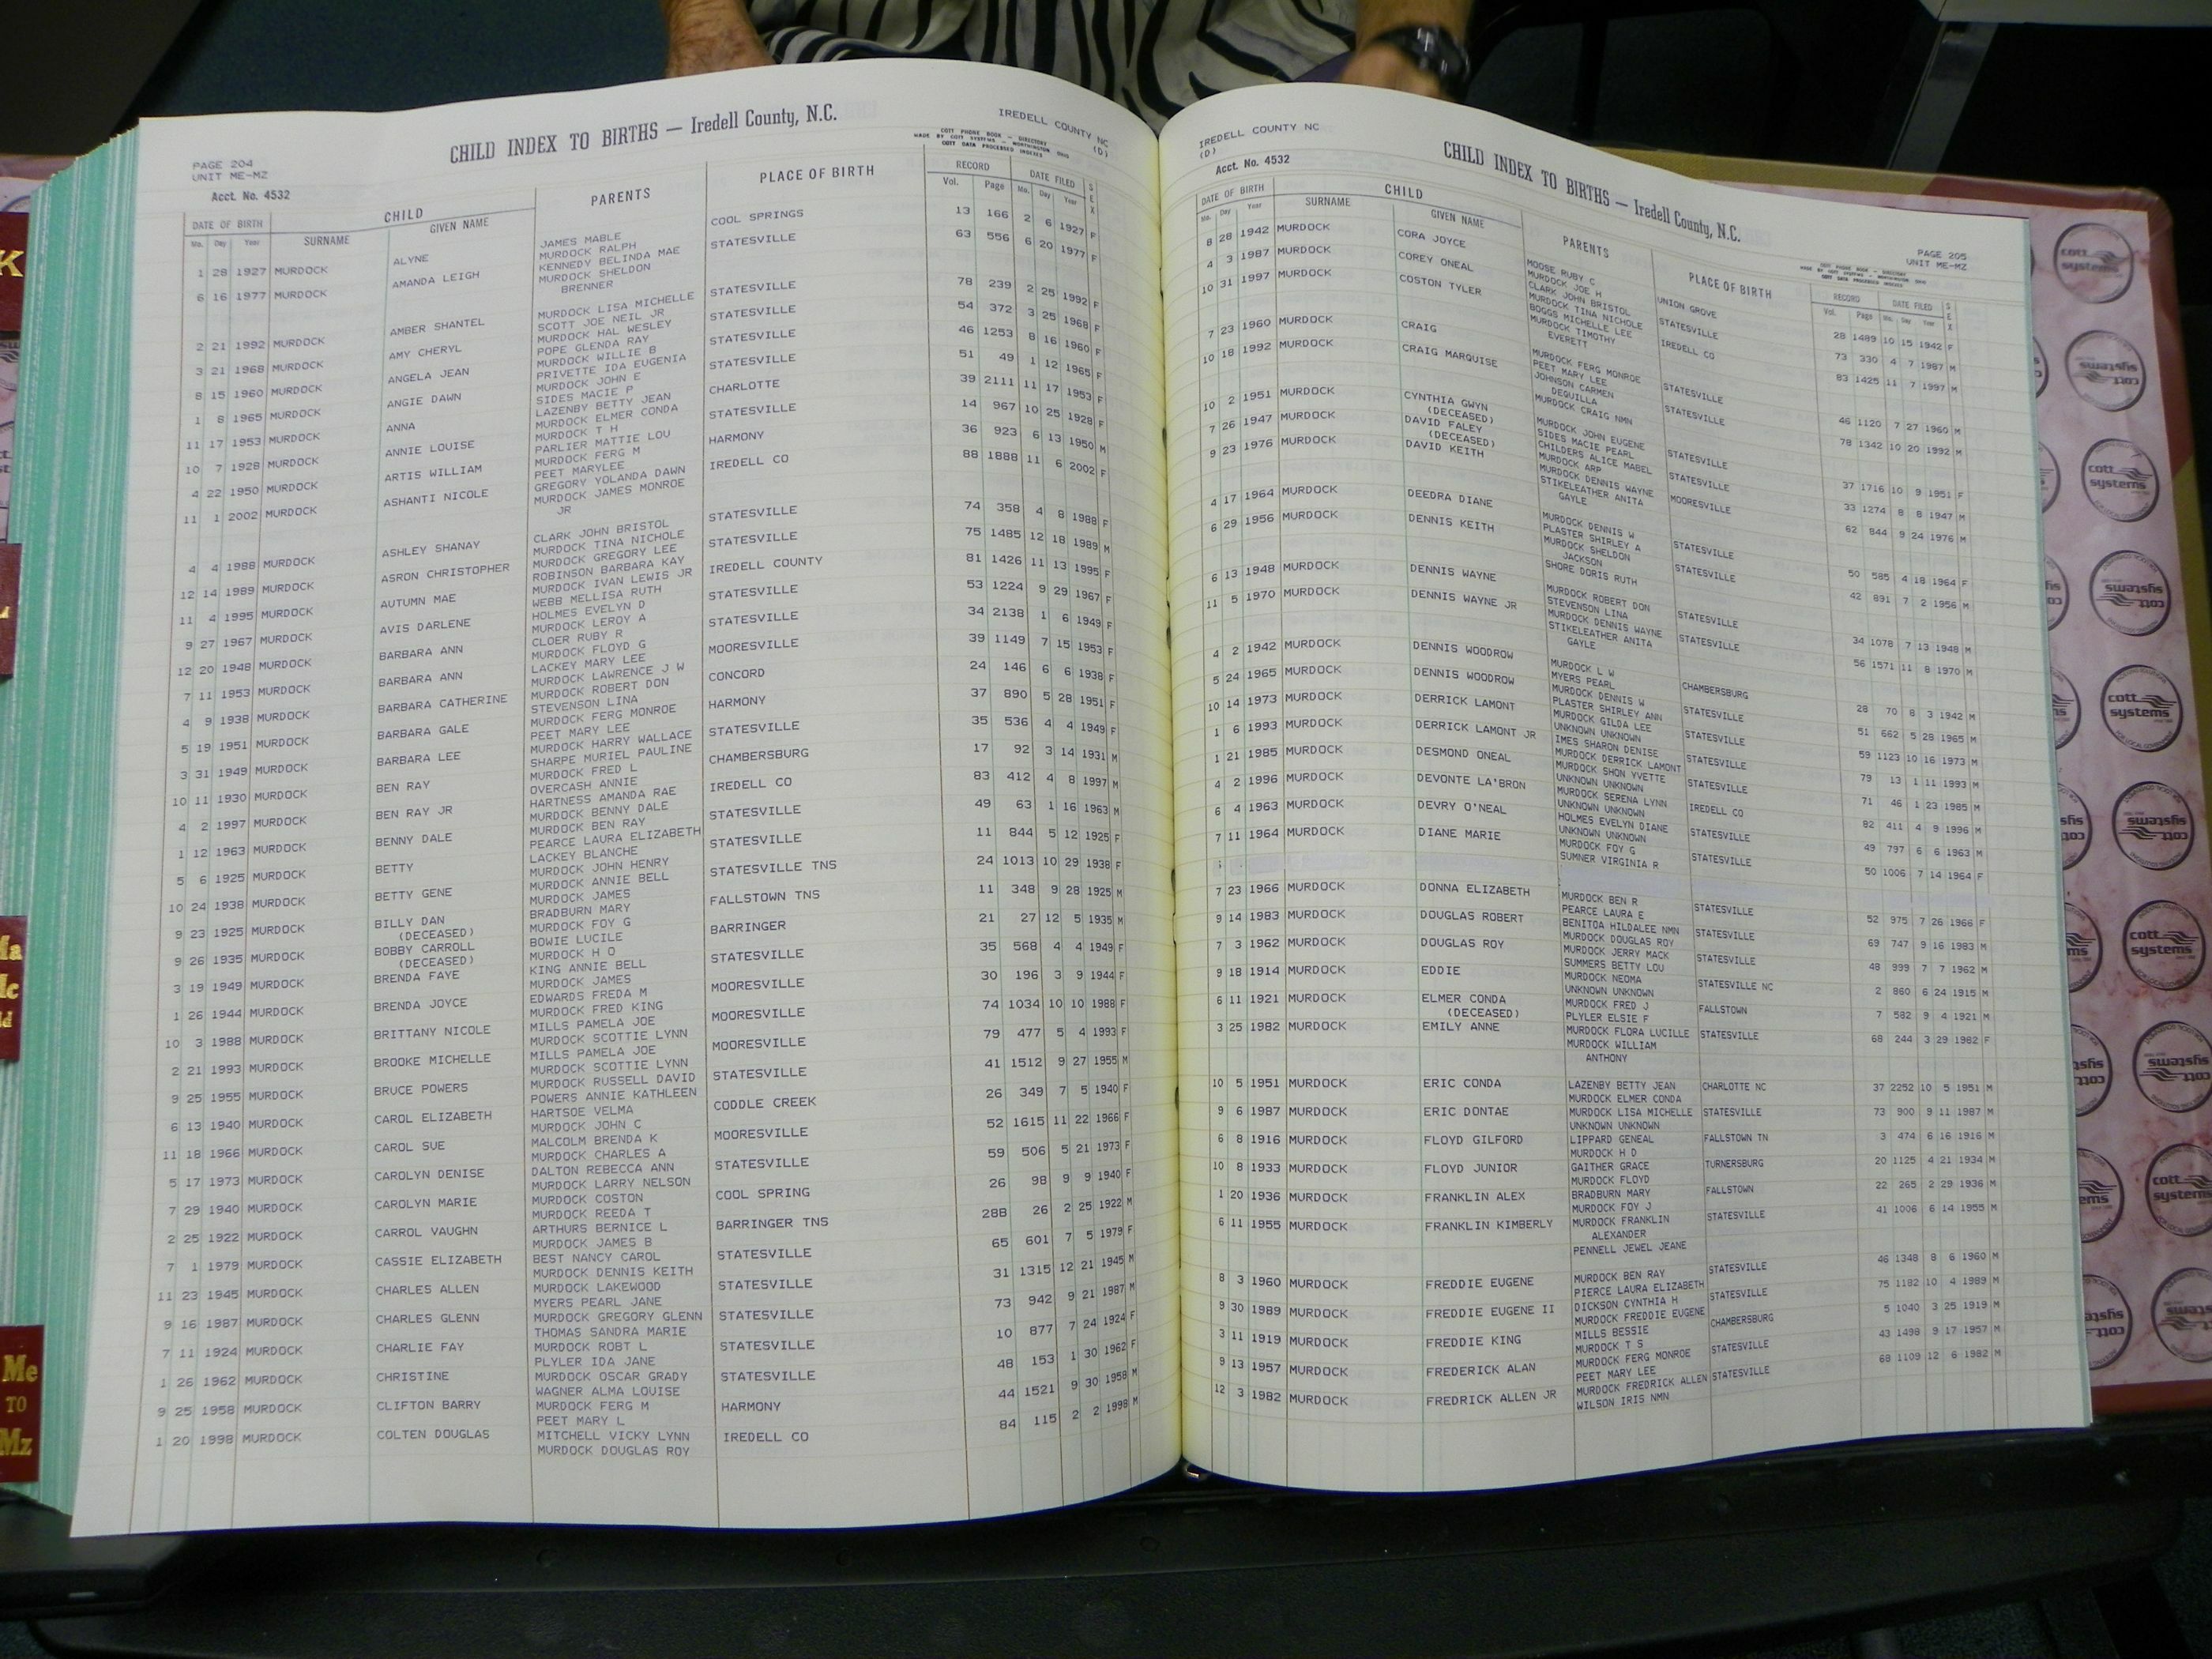 PAGE 204
UNIT ME-MZ
CHILD INDEX TO BIRTHS — Iredell County, N.C.
IREDELL COUNTY NC
(D)
COTT PHONE BOOK — DIRECTORY
MADE BY COTT SYSTEMS — WORTHINGTON OHIO
COTT DATA PROCESSED INDEXES
Acct. No. 4532
DATE OF BIRTH CHILD PARENTS PLACE OF BIRTH RECORD DATE FILED SEX
Mo. Day Year SURNAME GIVEN NAME Vol. Page Mo. Day Year
1 28 1927 MURDOCK ALYNE JAMES MABLE COOL SPRINGS 13 166 2 6 1927 F
MURDOCK RALPH
6 16 1977 MURDOCK AMANDA LEIGH KENNEDY BELINDA MAE STATESVILLE 63 556 6 20 1977 F
MURDOCK SHELDON
BRENNER
2 21 1992 MURDOCK AMBER SHANTEL MURDOCK LISA MICHELLE STATESVILLE 78 239 2 25 1992 F
SCOTT JOE NEIL JR
3 21 1968 MURDOCK AMY CHERYL MURDOCK HAL WESLEY STATESVILLE 54 372 3 25 1968 F
POPE GLENDA RAY
8 15 1960 MURDOCK ANGELA JEAN MURDOCK WILLIE B STATESVILLE 46 1253 8 16 1960 F
PRIVETTE IDA EUGENIA
1 8 1965 MURDOCK ANGIE DAWN MURDOCK JOHN E STATESVILLE 51 49 1 12 1965 F
SIDES MACIE P
11 17 1953 MURDOCK ANNA LAZENBY BETTY JEAN CHARLOTTE 39 2111 11 17 1953 F
MURDOCK ELMER CONDA
10 7 1928 MURDOCK ANNIE LOUISE MURDOCK T H STATESVILLE 14 967 10 25 1928 F
PARLIER MATTIE LOU
4 22 1950 MURDOCK ARTIS WILLIAM MURDOCK FERG M HARMONY 36 923 6 13 1950 M
PEET MARYLEE
11 1 2002 MURDOCK ASHANTI NICOLE GREGORY YOLANDA DAWN IREDELL CO 88 1888 11 6 2002 F
MURDOCK JAMES MONROE
JR
4 4 1988 MURDOCK ASHLEY SHANAY CLARK JOHN BRISTOL STATESVILLE 74 358 4 8 1988 F
MURDOCK TINA NICHOLE
12 14 1989 MURDOCK ASRON CHRISTOPHER MURDOCK GREGORY LEE STATESVILLE 75 1485 12 18 1989 M
ROBINSON BARBARA KAY
11 4 1995 MURDOCK AUTUMN MAE MURDOCK IVAN LEWIS JR IREDELL COUNTY 81 1426 11 13 1995 F
WEBB MELLISA RUTH
9 27 1967 MURDOCK AVIS DARLENE HOLMES EVELYN D STATESVILLE 53 1224 9 29 1967 F
MURDOCK LEROY A
12 20 1948 MURDOCK BARBARA ANN CLOER RUBY R STATESVILLE 34 2138 1 6 1949 F
MURDOCK FLOYD G
7 11 1953 MURDOCK BARBARA ANN LACKEY MARY LEE MOORESVILLE 39 1149 7 15 1953 F
MURDOCK LAWRENCE J W
4 9 1938 MURDOCK BARBARA CATHERINE MURDOCK ROBERT DON CONCORD 24 146 6 6 1938 F
STEVENSON LINA
5 19 1951 MURDOCK BARBARA GALE MURDOCK FERG MONROE HARMONY 37 890 5 28 1951 F
PEET MARY LEE
3 31 1949 MURDOCK BARBARA LEE MURDOCK HARRY WALLACE STATESVILLE 35 536 4 4 1949 F
SHARPE MURIEL PAULINE
10 11 1930 MURDOCK BEN RAY MURDOCK FRED L CHAMBERSBURG 17 92 3 14 1931 M
OVERCASH ANNIE
4 2 1997 MURDOCK BEN RAY JR HARTNESS AMANDA RAE IREDELL CO 83 412 4 8 1997 M
MURDOCK BENNY DALE
1 12 1963 MURDOCK BENNY DALE MURDOCK BEN RAY STATESVILLE 49 63 1 16 1963 M
PEARCE LAURA ELIZABETH
5 6 1925 MURDOCK BETTY LACKEY BLANCHE STATESVILLE 11 844 5 12 1925 F
MURDOCK JOHN HENRY
10 24 1938 MURDOCK BETTY GENE MURDOCK ANNIE BELL STATESVILLE TNS 24 1013 10 29 1938 F
MURDOCK JAMES
9 23 1925 MURDOCK BILLY DAN BRADBURN MARY FALLSTOWN TNS 11 348 9 28 1925 M
(DECEASED) MURDOCK FOY G
9 26 1935 MURDOCK BOBBY CARROLL BOWIE LUCILE BARRINGER 21 27 12 5 1935 M
(DECEASED) MURDOCK H O
3 19 1949 MURDOCK BRENDA FAYE KING ANNIE BELL STATESVILLE 35 568 4 4 1949 F
MURDOCK JAMES
1 26 1944 MURDOCK BRENDA JOYCE EDWARDS FREDA M MOORESVILLE 30 196 3 9 1944 F
MURDOCK FRED KING
10 3 1988 MURDOCK BRITTANY NICOLE MILLS PAMELA JOE MOORESVILLE 74 1034 10 10 1988 F
MURDOCK SCOTTIE LYNN
2 21 1993 MURDOCK BROOKE MICHELLE MILLS PAMELA JOE MOORESVILLE 79 477 5 4 1993 F
MURDOCK SCOTTIE LYNN
9 25 1955 MURDOCK BRUCE POWERS MURDOCK RUSSELL DAVID STATESVILLE 41 1512 9 27 1955 M
POWERS ANNIE KATHLEEN
6 13 1940 MURDOCK CAROL ELIZABETH HARTSOE VELMA CODDLE CREEK 26 349 7 5 1940 F
MURDOCK JOHN C
11 18 1966 MURDOCK CAROL SUE MALCOLM BRENDA K MOORESVILLE 52 1615 11 22 1966 F
MURDOCK CHARLES A
5 17 1973 MURDOCK CAROLYN DENISE DALTON REBECCA ANN STATESVILLE 59 506 5 21 1973 F
MURDOCK LARRY NELSON
7 29 1940 MURDOCK CAROLYN MARIE MURDOCK COSTON COOL SPRING 26 98 9 9 1940 F
MURDOCK REEDA T
2 25 1922 MURDOCK CARROL VAUGHN ARTHURS BERNICE L BARRINGER TNS 28B 26 2 25 1922 M
MURDOCK JAMES B
7 1 1979 MURDOCK CASSIE ELIZABETH BEST NANCY CAROL STATESVILLE 65 601 7 5 1979 F
MURDOCK DENNIS KEITH
11 23 1945 MURDOCK CHARLES ALLEN MURDOCK LAKEWOOD STATESVILLE 31 1315 12 21 1945 M
MYERS PEARL JANE
9 16 1987 MURDOCK CHARLES GLENN MURDOCK GREGORY GLENN STATESVILLE 73 942 9 21 1987 M
THOMAS SANDRA MARIE
7 11 1924 MURDOCK CHARLIE FAY MURDOCK ROBT L STATESVILLE 10 877 7 24 1924 F
PLYLER IDA JANE
1 26 1962 MURDOCK CHRISTINE MURDOCK OSCAR GRADY STATESVILLE 48 153 1 30 1962 F
WAGNER ALMA LOUISE
9 25 1958 MURDOCK CLIFTON BARRY MURDOCK FERG M HARMONY 44 1521 9 30 1958 M
PEET MARY L
1 20 1998 MURDOCK COLTEN DOUGLAS MITCHELL VICKY LYNN IREDELL CO 84 115 2 2 1998 M
MURDOCK DOUGLAS ROY
IREDELL COUNTY NC
(D)
CHILD INDEX TO BIRTHS — Iredell County, N.C.
PAGE 205
UNIT ME-MZ
COTT PHONE BOOK — DIRECTORY
MADE BY COTT SYSTEMS — WORTHINGTON OHIO
COTT DATA PROCESSED INDEXES
Acct. No. 4532
DATE OF BIRTH CHILD PARENTS PLACE OF BIRTH RECORD DATE FILED SEX
Mo. Day Year SURNAME GIVEN NAME Vol. Page Mo. Day Year
8 28 1942 MURDOCK CORA JOYCE MOOSE RUBY C UNION GROVE 28 1489 10 15 1942 F
MURDOCK JOE H
4 3 1987 MURDOCK COREY ONEAL CLARK JOHN BRISTOL STATESVILLE 73 330 4 7 1987 M
MURDOCK TINA NICHOLE
10 31 1997 MURDOCK COSTON TYLER BOGGS MICHELLE LEE IREDELL CO 83 1425 11 7 1997 M
MURDOCK TIMOTHY
EVERETT
7 23 1960 MURDOCK CRAIG MURDOCK FERG MONROE STATESVILLE 46 1120 7 27 1960 M
PEET MARY LEE
10 18 1992 MURDOCK CRAIG MARQUISE JOHNSON CARMEN STATESVILLE 78 1342 10 20 1992 M
DEQUILLA
MURDOCK CRAIG NMN
10 2 1951 MURDOCK CYNTHIA GWYN MURDOCK JOHN EUGENE STATESVILLE 37 1716 10 9 1951 F
(DECEASED) SIDES MACIE PEARL
7 26 1947 MURDOCK DAVID FALEY CHILDERS ALICE MABEL STATESVILLE 33 1274 8 8 1947 M
(DECEASED) MURDOCK ARP
9 23 1976 MURDOCK DAVID KEITH MURDOCK DENNIS WAYNE MOORESVILLE 62 844 9 24 1976 M
STIKELEATHER ANITA
GAYLE
4 17 1964 MURDOCK DEEDRA DIANE MURDOCK DENNIS W STATESVILLE 50 585 4 18 1964 F
PLASTER SHIRLEY A
6 29 1956 MURDOCK DENNIS KEITH MURDOCK SHELDON STATESVILLE 42 891 7 2 1956 M
JACKSON
SHORE DORIS RUTH
6 13 1948 MURDOCK DENNIS WAYNE MURDOCK ROBERT DON STATESVILLE 34 1078 7 13 1948 M
STEVENSON LINA
11 5 1970 MURDOCK DENNIS WAYNE JR MURDOCK DENNIS WAYNE STATESVILLE 56 1571 11 8 1970 M
STIKELEATHER ANITA
GAYLE
4 2 1942 MURDOCK DENNIS WOODROW MURDOCK L W CHAMBERSBURG 28 70 8 3 1942 M
MYERS PEARL
5 24 1965 MURDOCK DENNIS WOODROW MURDOCK DENNIS W STATESVILLE 51 662 5 28 1965 M
PLASTER SHIRLEY ANN
10 14 1973 MURDOCK DERRICK LAMONT MURDOCK GILDA LEE STATESVILLE 59 1123 10 16 1973 M
UNKNOWN UNKNOWN
1 6 1993 MURDOCK DERRICK LAMONT JR IMES SHARON DENISE STATESVILLE 79 13 1 11 1993 M
MURDOCK DERRICK LAMONT
1 21 1985 MURDOCK DESMOND ONEAL MURDOCK SHON YVETTE STATESVILLE 71 46 1 23 1985 M
UNKNOWN UNKNOWN
4 2 1996 MURDOCK DEVONTE LA'BRON MURDOCK SERENA LYNN IREDELL CO 82 411 4 9 1996 M
UNKNOWN UNKNOWN
6 4 1963 MURDOCK DEVRY O'NEAL HOLMES EVELYN DIANE STATESVILLE 49 797 6 6 1963 M
UNKNOWN UNKNOWN
7 11 1964 MURDOCK DIANE MARIE MURDOCK FOY G STATESVILLE 50 1006 7 14 1964 F
SUMNER VIRGINIA R
7 23 1966 MURDOCK DONNA ELIZABETH MURDOCK BEN R STATESVILLE 52 975 7 26 1966 F
PEARCE LAURA E
9 14 1983 MURDOCK DOUGLAS ROBERT BENITOA HILDALEE NMN STATESVILLE 69 747 9 16 1983 M
MURDOCK DOUGLAS ROY
7 3 1962 MURDOCK DOUGLAS ROY MURDOCK JERRY MACK STATESVILLE 48 999 7 7 1962 M
SUMMERS BETTY LOU
9 18 1914 MURDOCK EDDIE MURDOCK NEOMA STATESVILLE NC 2 860 6 24 1915 M
UNKNOWN UNKNOWN
6 11 1921 MURDOCK ELMER CONDA MURDOCK FRED J FALLSTOWN 7 582 9 4 1921 M
(DECEASED) PLYLER ELSIE F
3 25 1982 MURDOCK EMILY ANNE MURDOCK FLORA LUCILLE STATESVILLE 68 244 3 29 1982 F
MURDOCK WILLIAM
ANTHONY
10 5 1951 MURDOCK ERIC CONDA LAZENBY BETTY JEAN CHARLOTTE NC 37 2252 10 5 1951 M
MURDOCK ELMER CONDA
9 6 1987 MURDOCK ERIC DONTAE MURDOCK LISA MICHELLE STATESVILLE 73 900 9 11 1987 M
UNKNOWN UNKNOWN
6 8 1916 MURDOCK FLOYD GILFORD LIPPARD GENEAL FALLSTOWN TN 3 474 6 16 1916 M
MURDOCK H D
10 8 1933 MURDOCK FLOYD JUNIOR GAITHER GRACE TURNERSBURG 20 1125 4 21 1934 M
MURDOCK FLOYD
1 20 1936 MURDOCK FRANKLIN ALEX BRADBURN MARY FALLSTOWN 22 265 2 29 1936 M
MURDOCK FOY J
6 11 1955 MURDOCK FRANKLIN KIMBERLY MURDOCK FRANKLIN STATESVILLE 41 1006 6 14 1955 M
ALEXANDER
PENNELL JEWEL JEANE
8 3 1960 MURDOCK FREDDIE EUGENE MURDOCK BEN RAY STATESVILLE 46 1348 8 6 1960 M
PIERCE LAURA ELIZABETH
9 30 1989 MURDOCK FREDDIE EUGENE II DICKSON CYNTHIA H STATESVILLE 75 1182 10 4 1989 M
MURDOCK FREDDIE EUGENE
3 11 1919 MURDOCK FREDDIE KING MILLS BESSIE CHAMBERSBURG 5 1040 3 25 1919 M
MURDOCK T S
9 13 1957 MURDOCK FREDERICK ALAN MURDOCK FERG MONROE STATESVILLE 43 1498 9 17 1957 M
PEET MARY LEE
12 3 1982 MURDOCK FREDRICK ALLEN JR MURDOCK FREDRICK ALLEN STATESVILLE 68 1109 12 6 1982 M
WILSON IRIS NMN
K
Me
TO
Mz
cott
systems